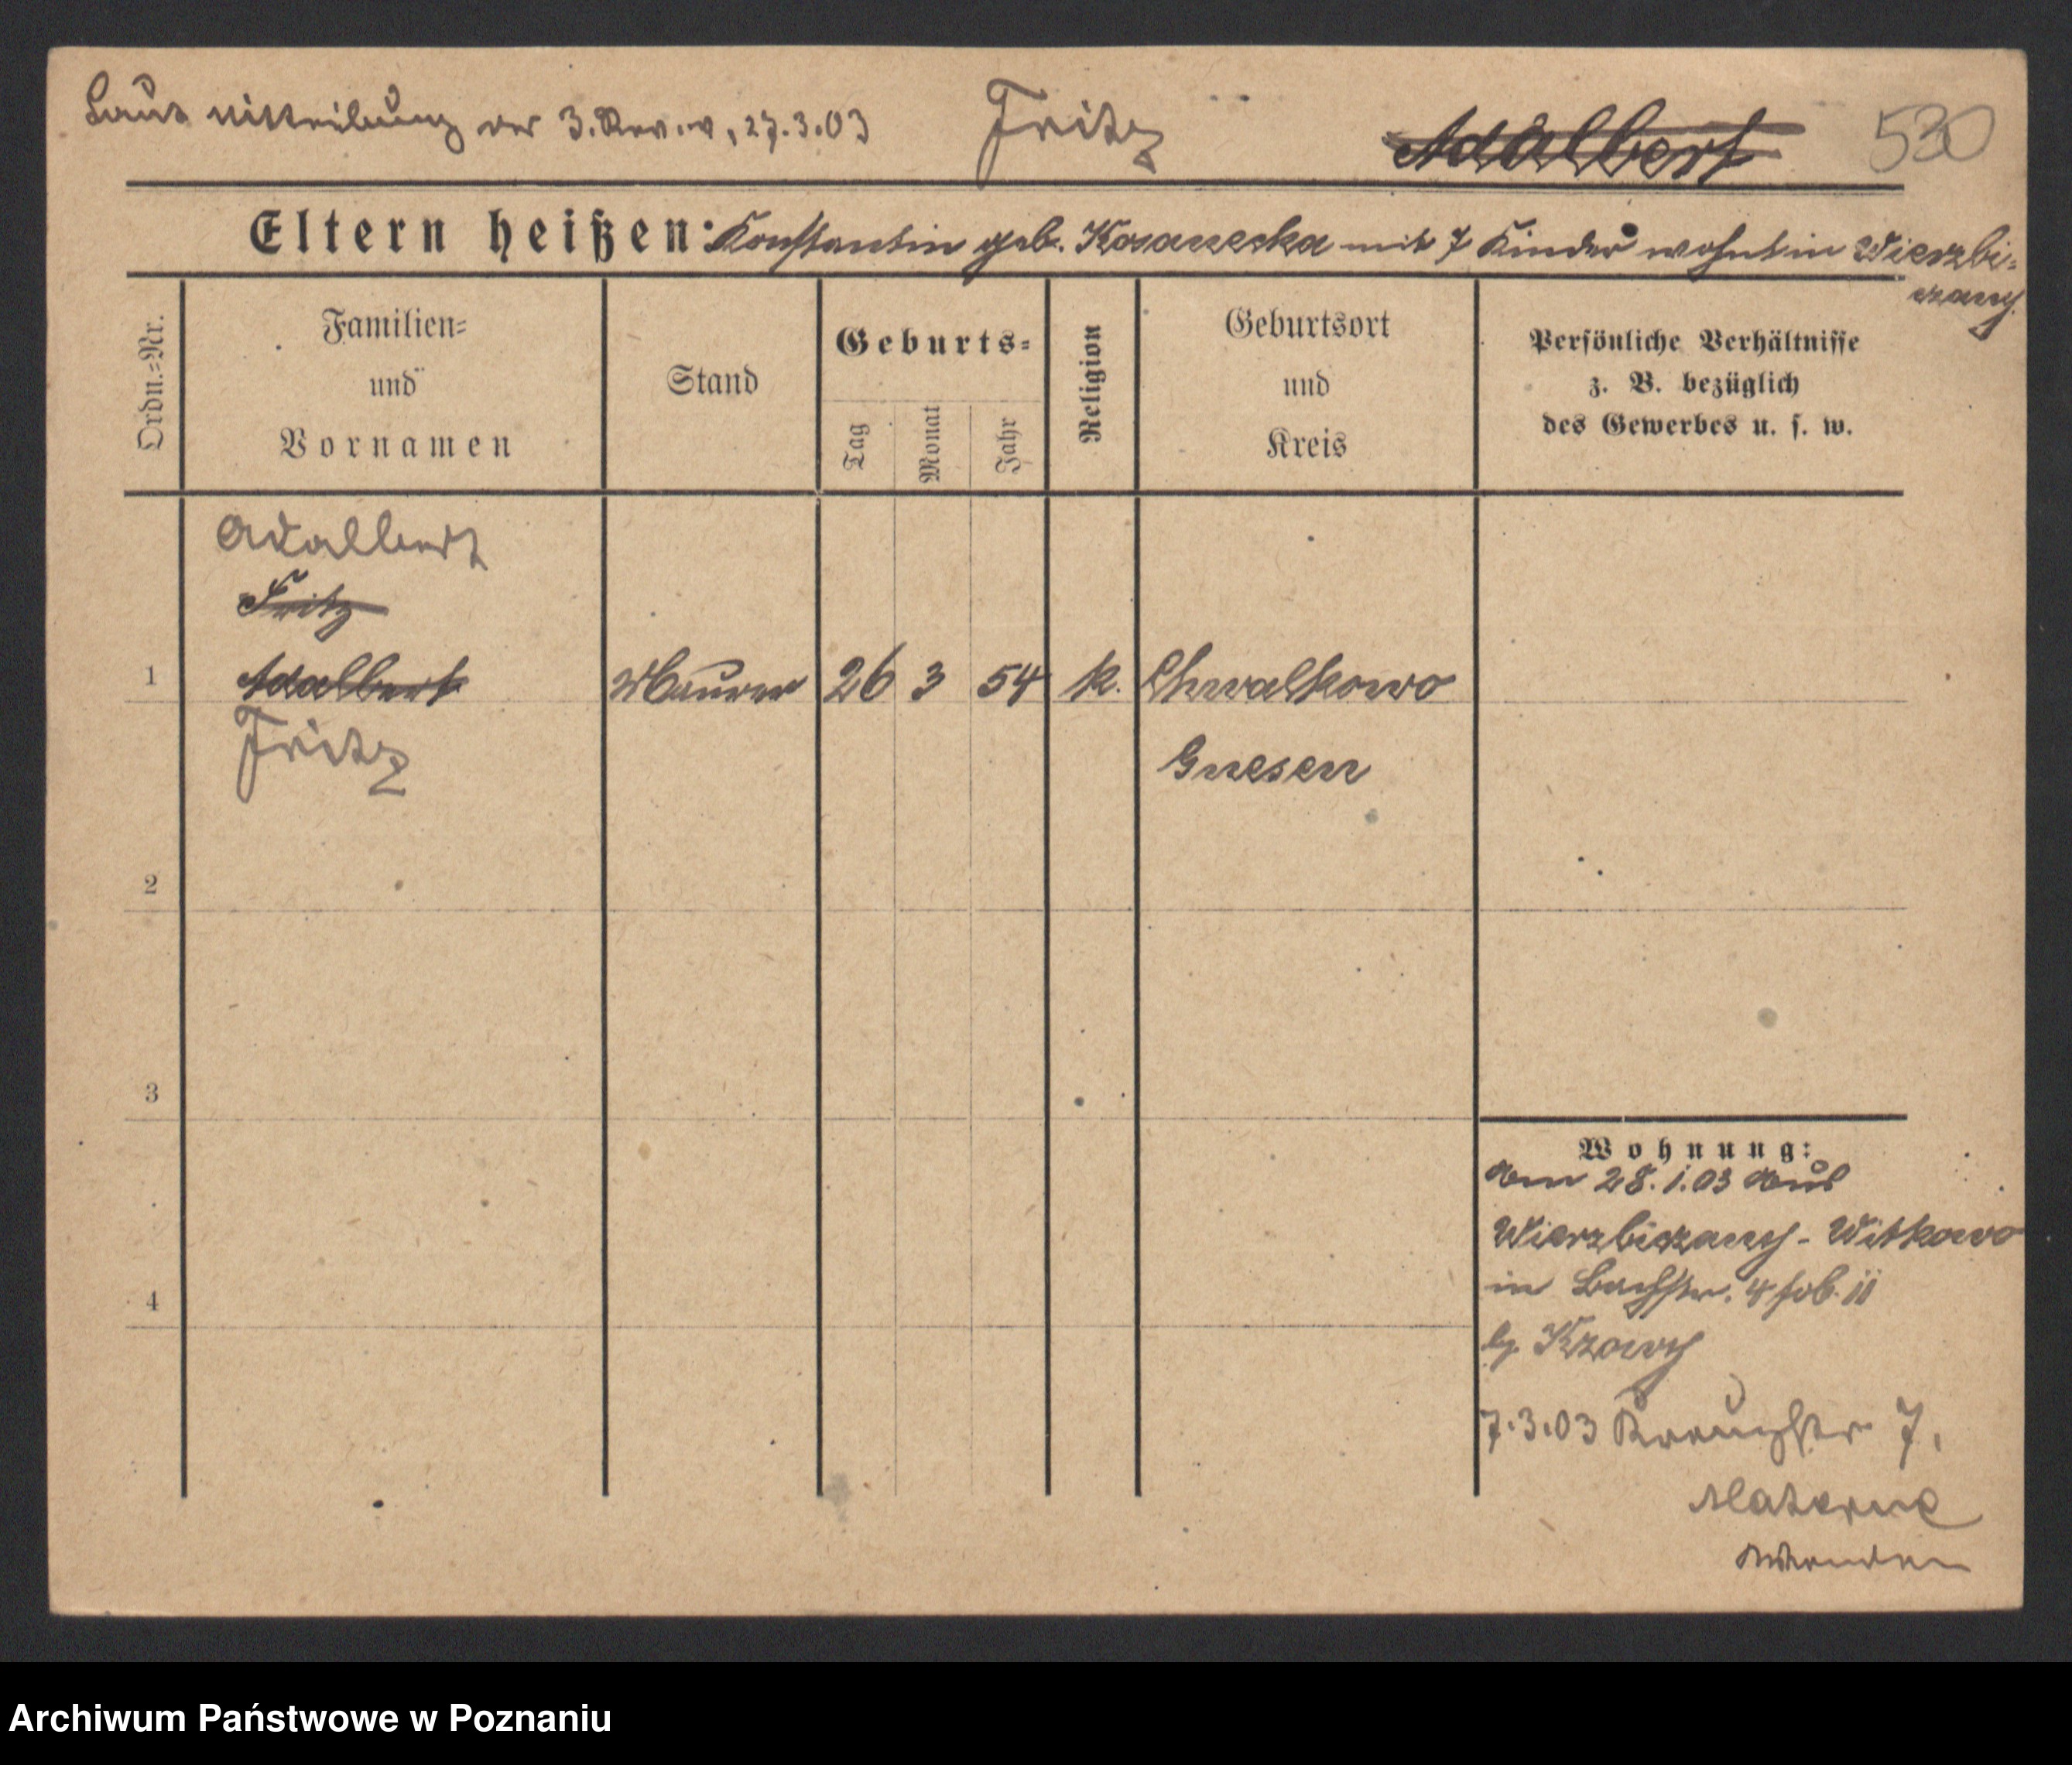 Laut Mitteilung der 3. Rev. v. 27.3.03 Fritz Adalbert 530
Eltern heißen: Konstantin geb. mit 7 Kinder wohnt in Wierzbi-
czany
Ordn.=Nr.
Familien=
und
Vornamen
Stand
Geburts=
Tag
Monat
Jahr
Religion
Geburtsort
und
Kreis
Persönliche Verhältnisse
z. B. bezüglich
des Gewerbes u. s. w.
Adalbert
Fritz
1 Adalbert Maurer 26 3 54 k. Chwalkowo
Fritz Gnesen
2
3
4
Wohnung:
am 28.1.03 aus
Wierzbiczany - Witkowo
in Bachstr. 4 II
Krawy
7.3.03 7.
Materne
wenden
Archiwum Państwowe w Poznaniu